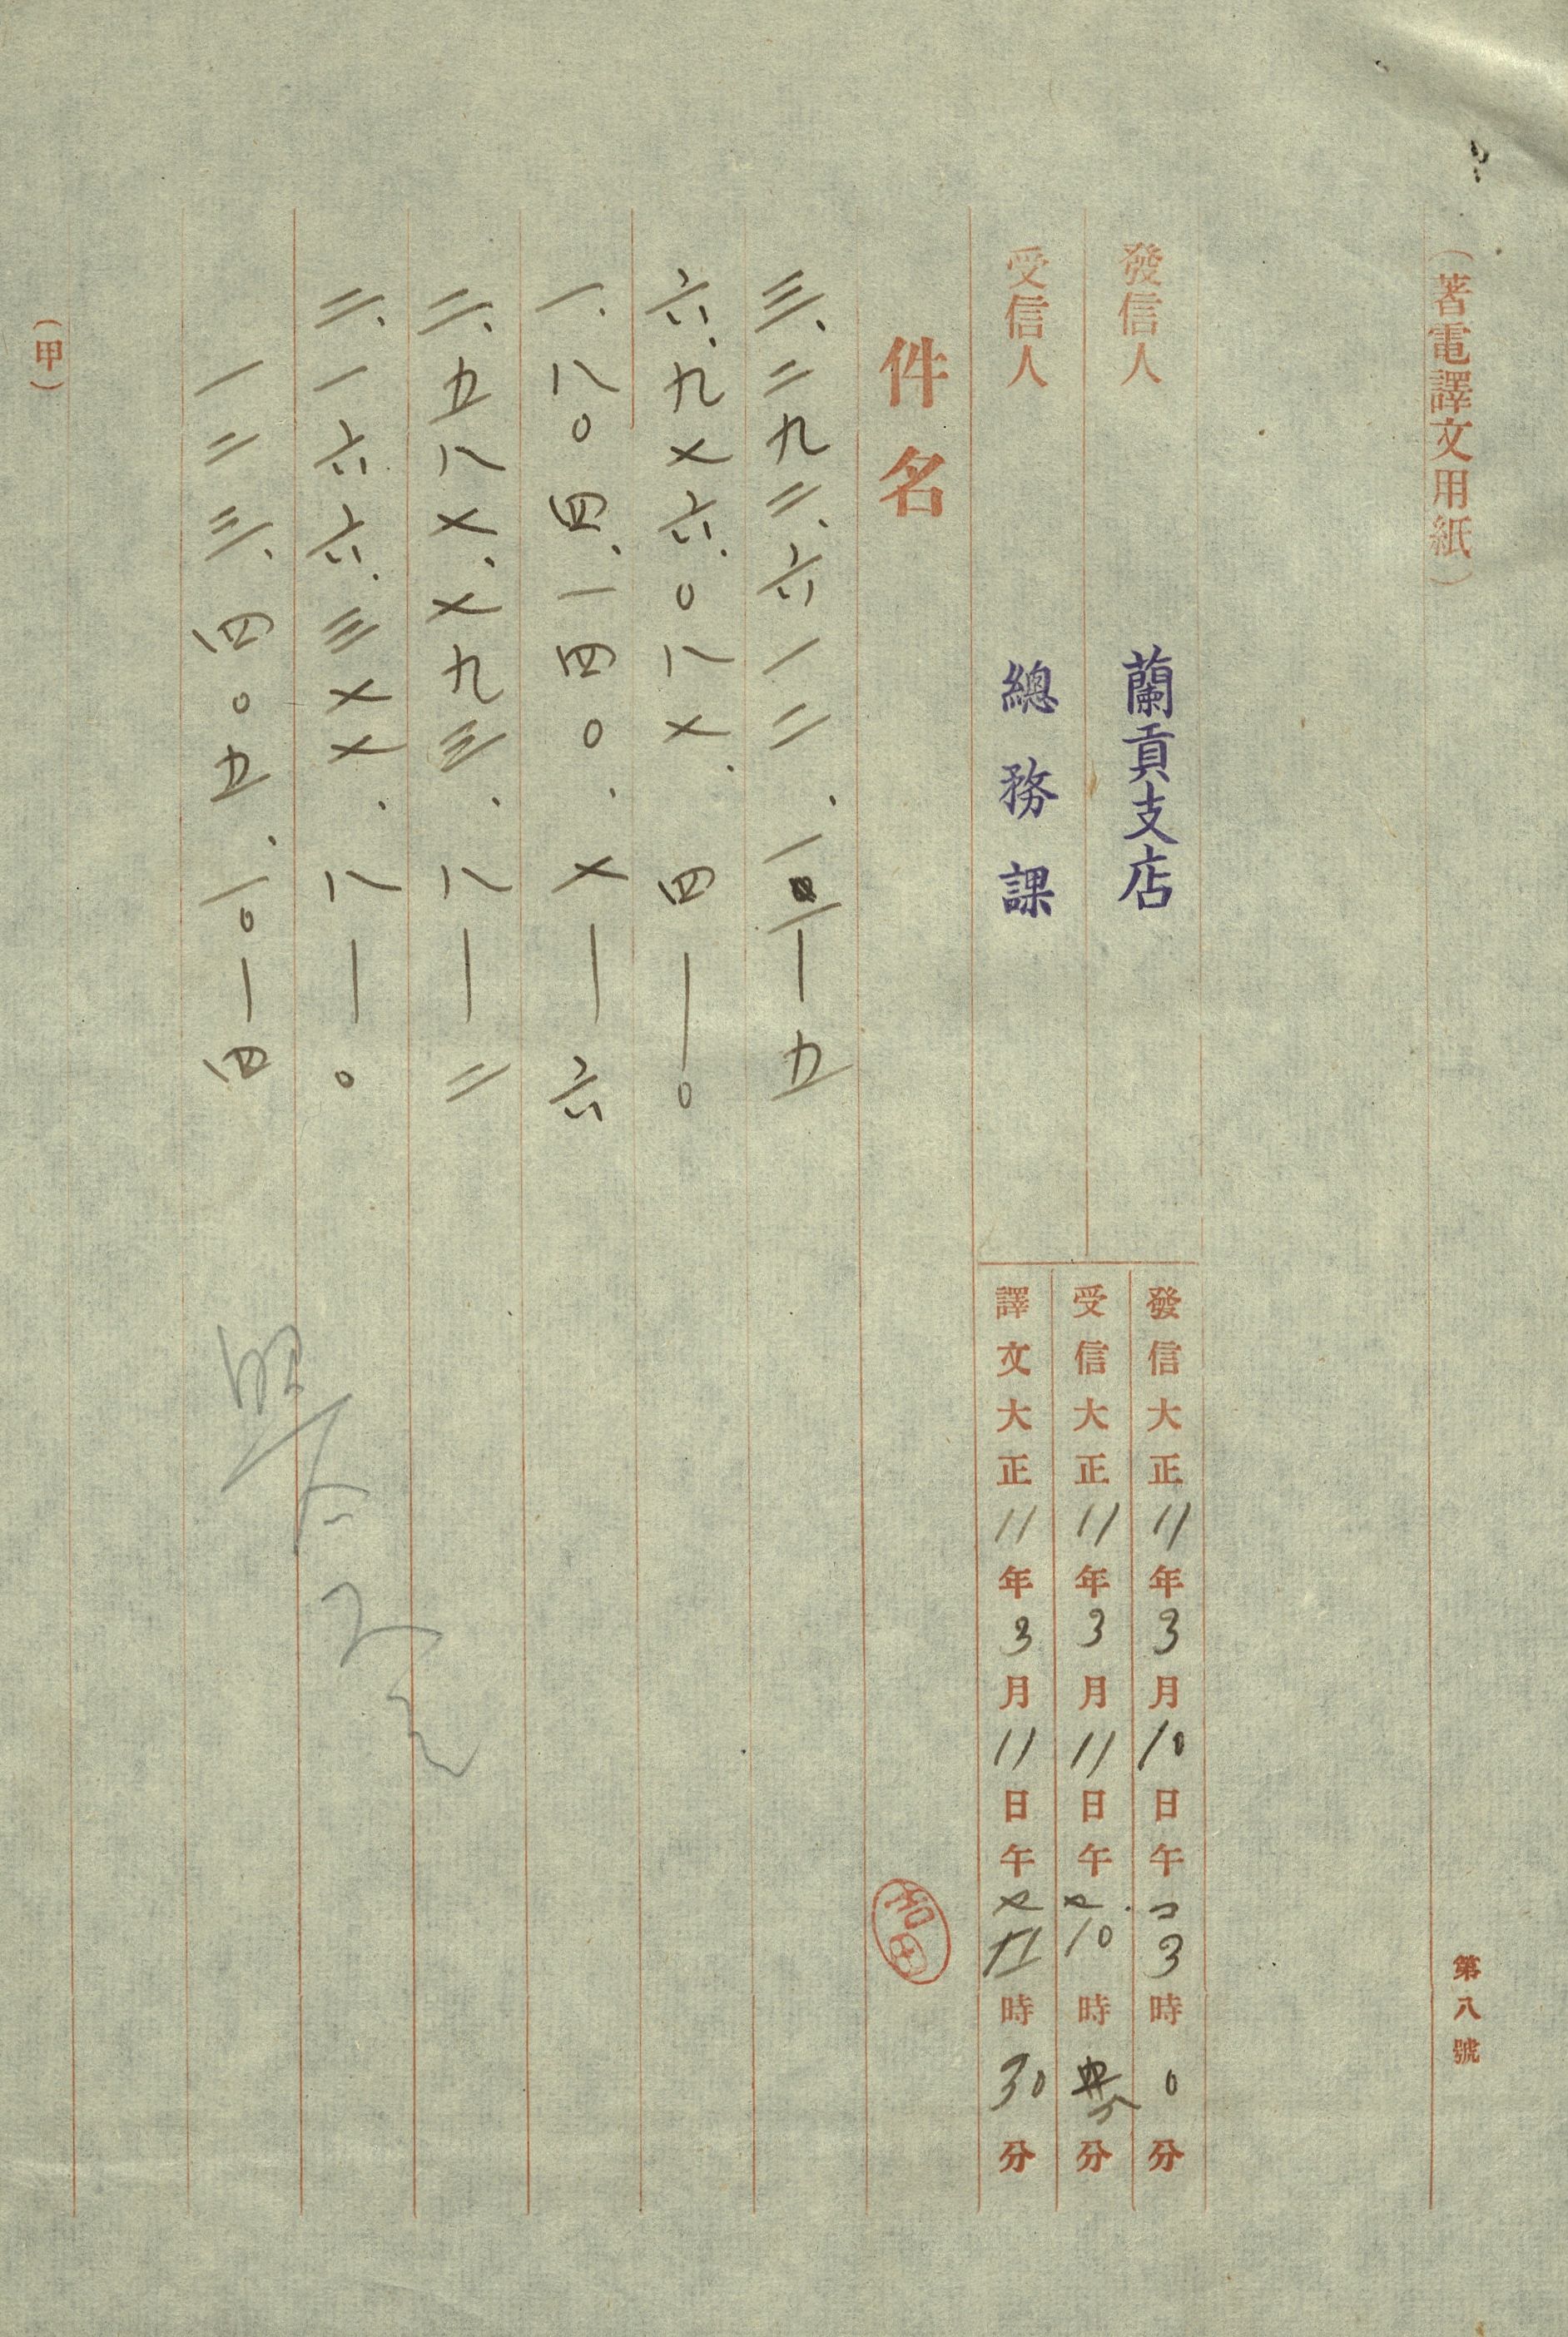 （著電譯文用紙）
第八號
發信人 蘭貢支店
受信人 總務課
發信大正11年3月10日午コ3時0分
受信大正11年3月11日午セ10時分
譯文大正11年3月11日午セ11時30分
件名
三、二九二、六一二、一二—五
六、九七六、〇八七、四—〇
一、八〇四、一四〇、七—六
二、五八七、七九三、八—二
二、一六六、三七七、八—〇
一二三、四〇五、一〇—四
（甲）